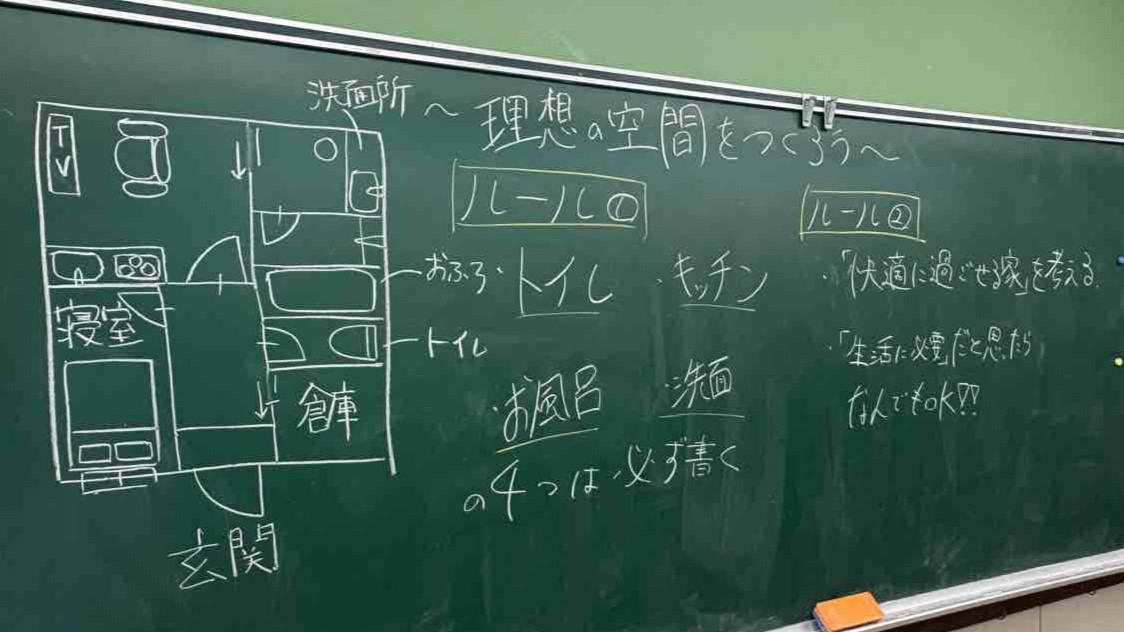 洗面所
～理想の空間をつくろう～
TV
寝室
おふろ
トイレ
倉庫
玄関
ルール①
・トイレ ・キッチン
・お風呂 ・洗面
の4つは必ず書く
ルール②
・「快適に過ごせる家」を考える。
・「生活に必要」だと思ったら
なんでもOK!!